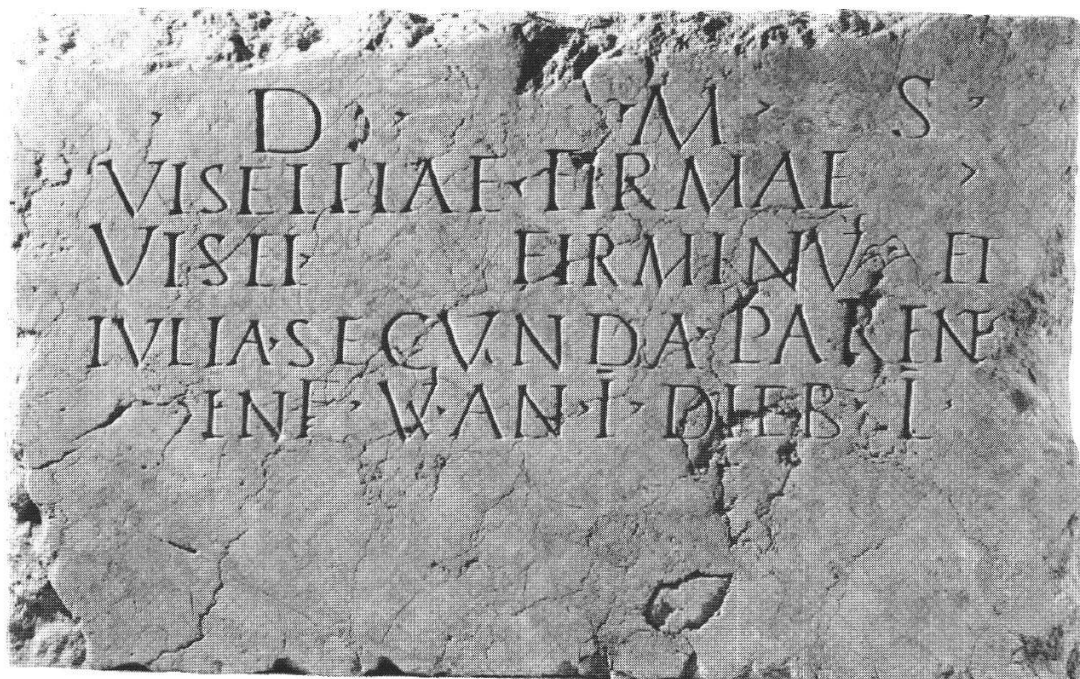 D · M · S ·
VISELLIAE · FIRMAE ·
VISEL · FIRMINVS ET
IVLIA · SECVNDA · PARENT
INF · VIX · AN · I · DIEB · L ·